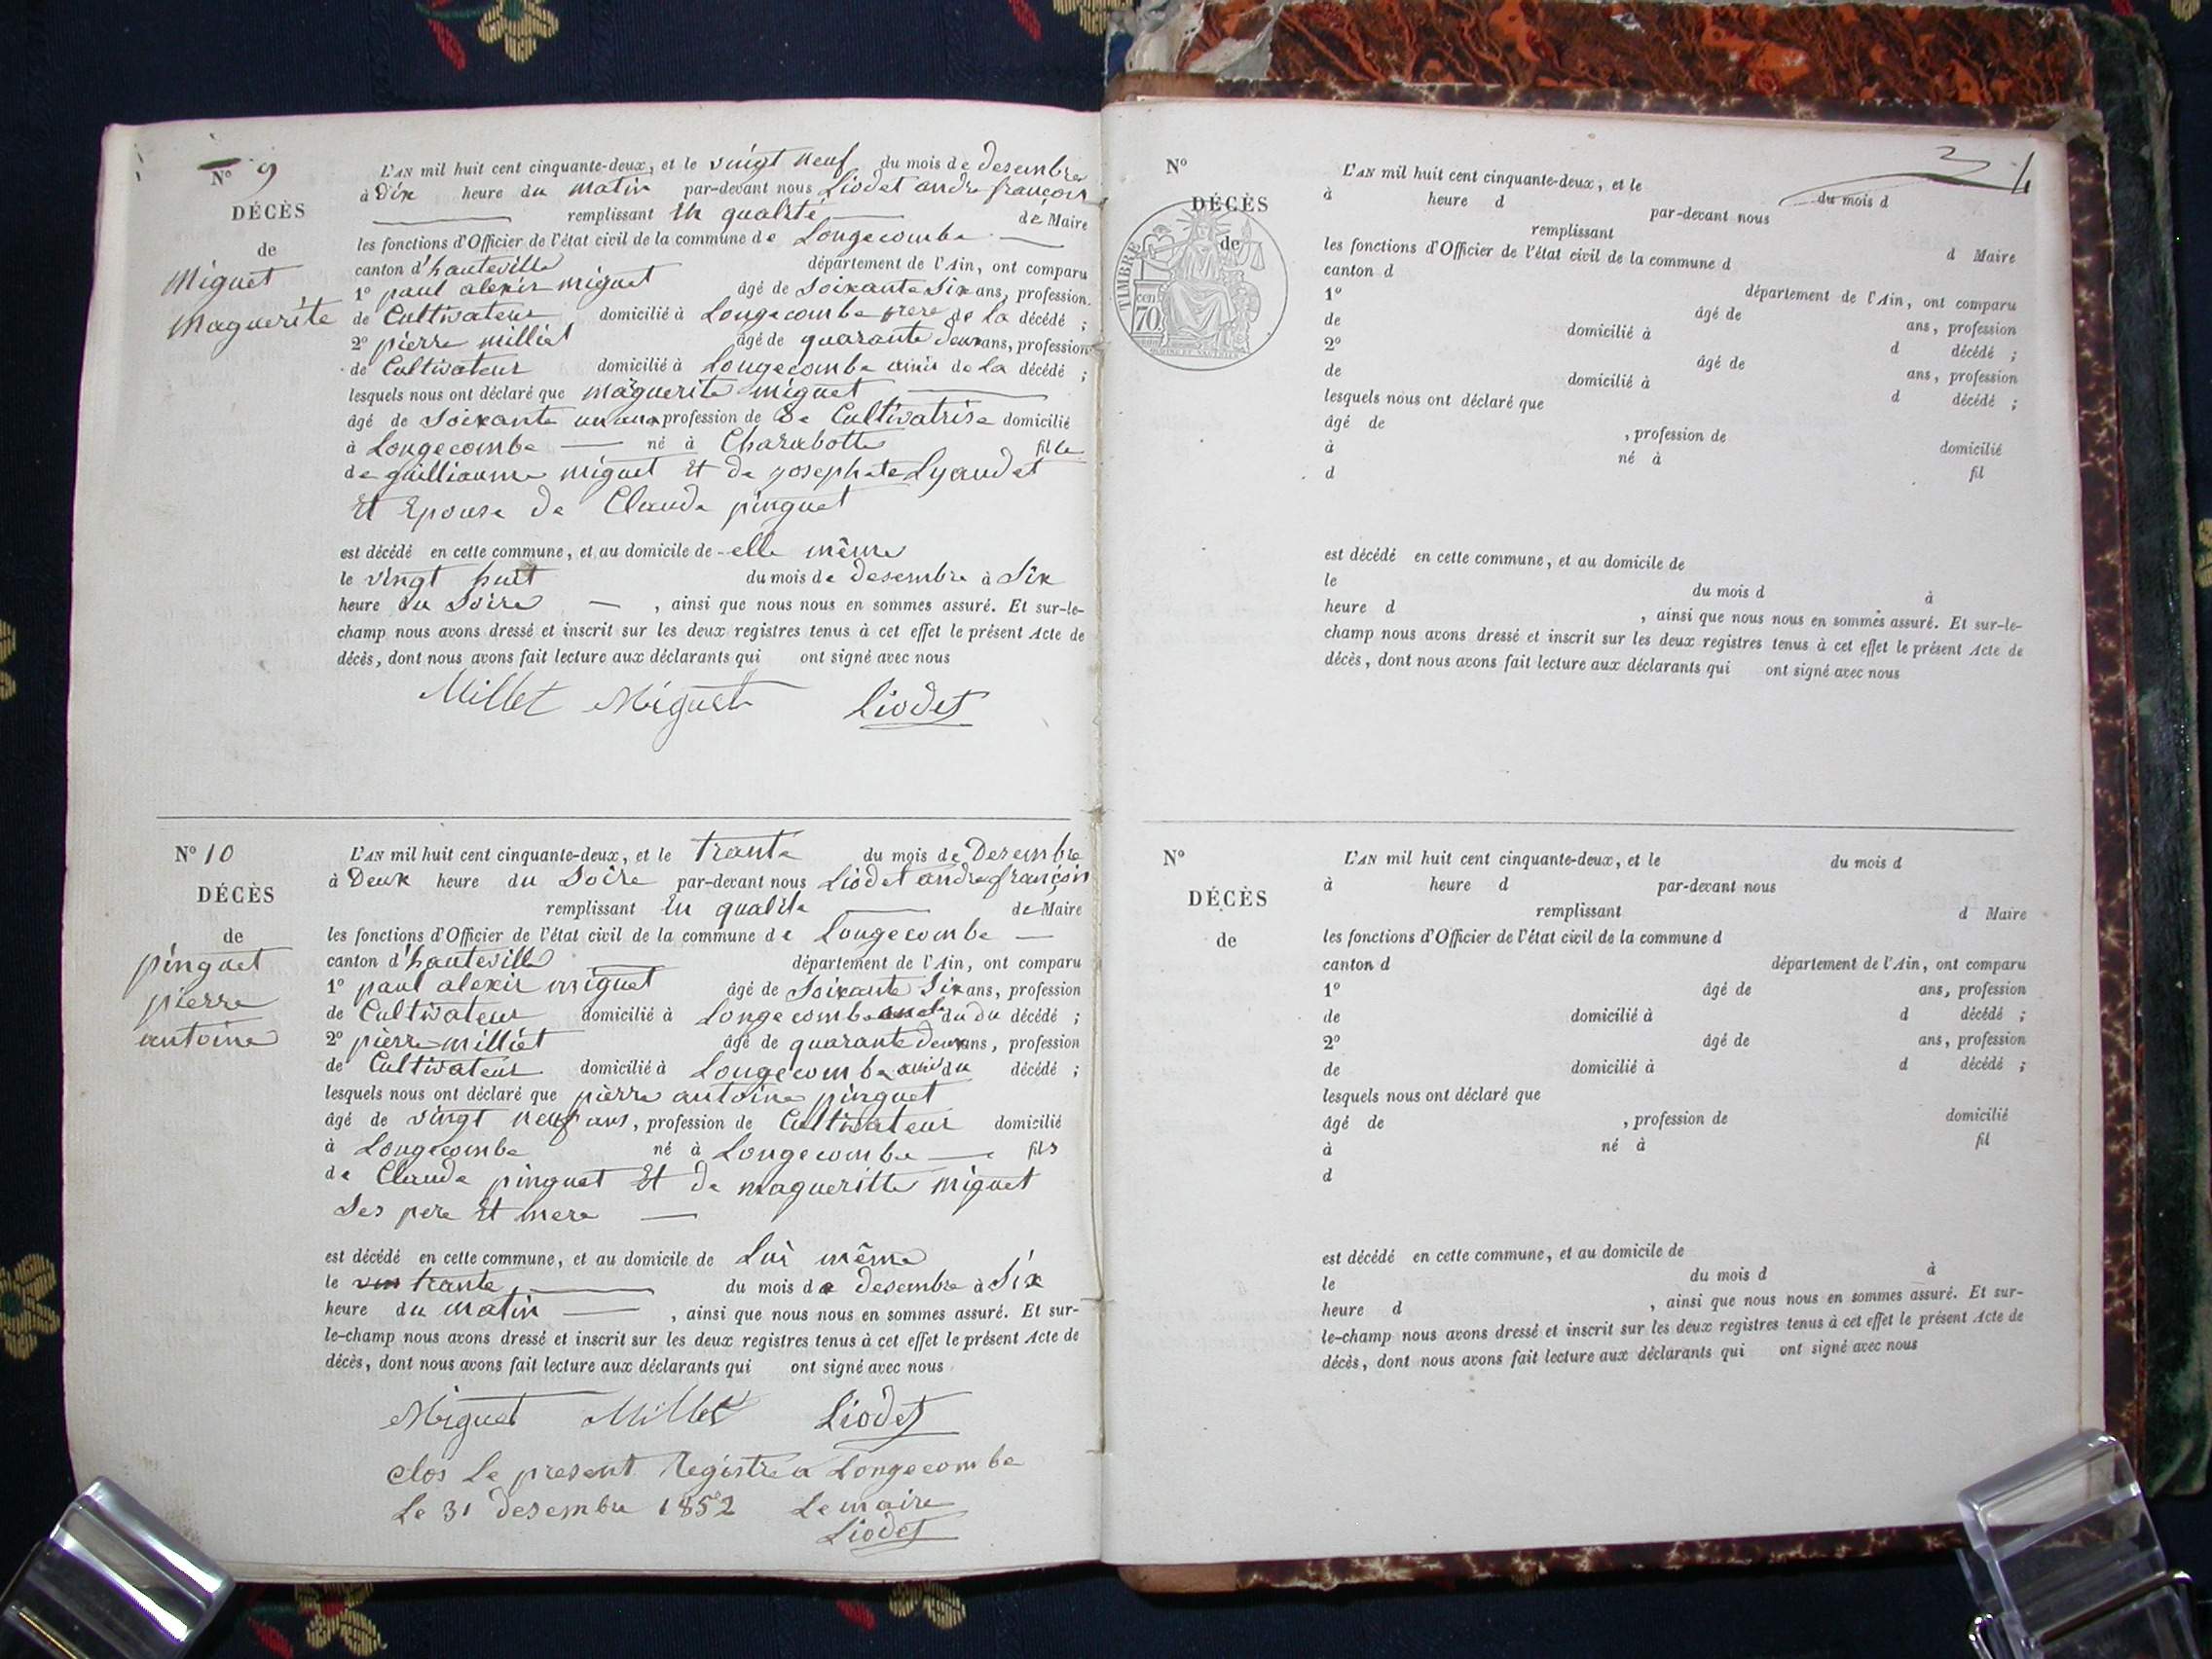 N° 9
DÉCÈS
de
Miguet
Maguerite
L'AN mil huit cent cinquante-deux, et le vingt neuf du mois de desembre
à Dix heure du matin par-devant nous Liodet andre françois
remplissant En qualité de Maire
les fonctions d'Officier de l'état civil de la commune de Longecombe
canton d'hauteville département de l'Ain, ont comparu
1° paul alexis miguet âgé de Soixante Six ans, profession
de Cultivateur domicilié à Longecombe frere de La décédé ;
2° pierre milliet âgé de quarante deux ans, profession
de Cultivateur domicilié à Longecombe amis de La décédé ;
lesquels nous ont déclaré que maguerite miguet
âgé de Soixante un ans profession de De Cultivatrise domicilié
à Longecombe né à Charabotte fille
de guilliaume miguet Et de josephete Lyaudet
Et Epouse de Claude pinguet
est décédé en cette commune, et au domicile de elle même
le vingt huit du mois de desembre à Six
heure du Soire , ainsi que nous nous en sommes assuré. Et sur-le-
champ nous avons dressé et inscrit sur les deux registres tenus à cet effet le présent Acte de
décès, dont nous avons fait lecture aux déclarants qui ont signé avec nous
Millet Miguet Liodet
N° 10
DÉCÈS
de
pinguet
pierre
antoine
L'AN mil huit cent cinquante-deux, et le trante du mois de Desembre
à Deux heure du Soire par-devant nous Liodet andre françois
remplissant En qualite de Maire
les fonctions d'Officier de l'état civil de la commune de Longecombe
canton d'hauteville département de l'Ain, ont comparu
1° paul alexis miguet âgé de Soixante Six ans, profession
de Cultivateur domicilié à Longecombe du décédé ;
2° pierre milliet âgé de quarante deux ans, profession
de Cultivateur domicilié à Longecombe ami du décédé ;
lesquels nous ont déclaré que pierre antoine pinguet
âgé de vingt neuf ans, profession de Cultivateur domicilié
à Longecombe né à Longecombe fils
de Claude pinguet Et de magueritte miguet
Ses pere Et mere
est décédé en cette commune, et au domicile de Lui même
le trante du mois de desembre à Six
heure du matin , ainsi que nous nous en sommes assuré. Et sur-
le-champ nous avons dressé et inscrit sur les deux registres tenus à cet effet le présent Acte de
décès, dont nous avons fait lecture aux déclarants qui ont signé avec nous
Miguet Millet Liodet
Clos Le present Registre a Longecombe
Le 31 desembre 1852 Le maire
Liodet
N°
DÉCÈS
de
TIMBRE
cen
70
L'AN mil huit cent cinquante-deux, et le du mois d
à heure d par-devant nous
remplissant d Maire
les fonctions d'Officier de l'état civil de la commune d
canton d département de l'Ain, ont comparu
1° âgé de ans, profession
de domicilié à d décédé ;
2° âgé de ans, profession
de domicilié à d décédé ;
lesquels nous ont déclaré que
âgé de , profession de domicilié
à né à fil
d
est décédé en cette commune, et au domicile de
le du mois d à
heure d , ainsi que nous nous en sommes assuré. Et sur-le-
champ nous avons dressé et inscrit sur les deux registres tenus à cet effet le présent Acte de
décès, dont nous avons fait lecture aux déclarants qui ont signé avec nous
N°
DÉCÈS
de
L'AN mil huit cent cinquante-deux, et le du mois d
à heure d par-devant nous
remplissant d Maire
les fonctions d'Officier de l'état civil de la commune d
canton d département de l'Ain, ont comparu
1° âgé de ans, profession
de domicilié à d décédé ;
2° âgé de ans, profession
de domicilié à d décédé ;
lesquels nous ont déclaré que
âgé de , profession de domicilié
à né à fil
d
est décédé en cette commune, et au domicile de
le du mois d à
heure d , ainsi que nous nous en sommes assuré. Et sur-
le-champ nous avons dressé et inscrit sur les deux registres tenus à cet effet le présent Acte de
décès, dont nous avons fait lecture aux déclarants qui ont signé avec nous